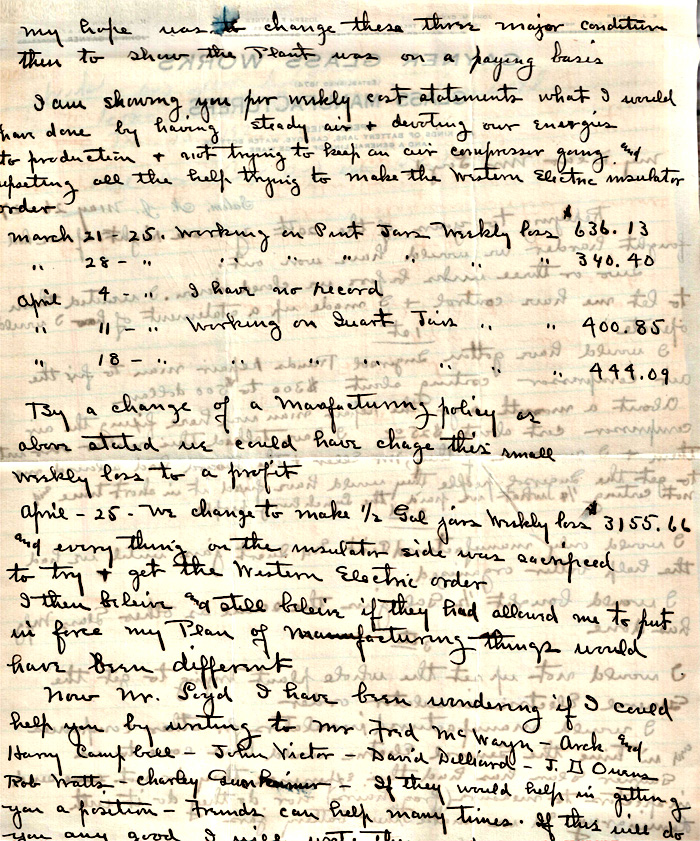 my hope was to change these three major condition
then to show the Plant was on a paying basis
I am showing you per wekly cost statements what I would
have done by having steady air + devoting our energies
to production + not trying to keep an air compressor going and
upseting all the help trying to make the Western Electric insulator
order.
March 21 - 25. Working on Pint Jars Weekly loss $ 636.13
" 28 - " " " " " " " 340.40
April 4 - " I have no record
" 11 - " Working on Quart Jars " " 400.85
" 18 - " " " " " " " 444.09
By a change of a Manfacturing policy as
above stated we could have chage this small
weekly loss to a profit
April - 25 - We change to make 1/2 Gal jars Weekly loss $ 3155.66
and every thing on the insulator side was sacrificed
to try + get the Western Electric order
I then beleive and still beleive if they had allowed me to put
in force my Plan of manufacturing things would
have been different
Now Mr. Loyd I have been wondering if I could
help you by writing to Mr Fred McWayn - Arch and
Harry Campbell - John Victor - David Dilliard - J. D Owens
Rob Watts - Charley - If they would help in getting
you a position - Friends can help many times. If this will do
you any good I will